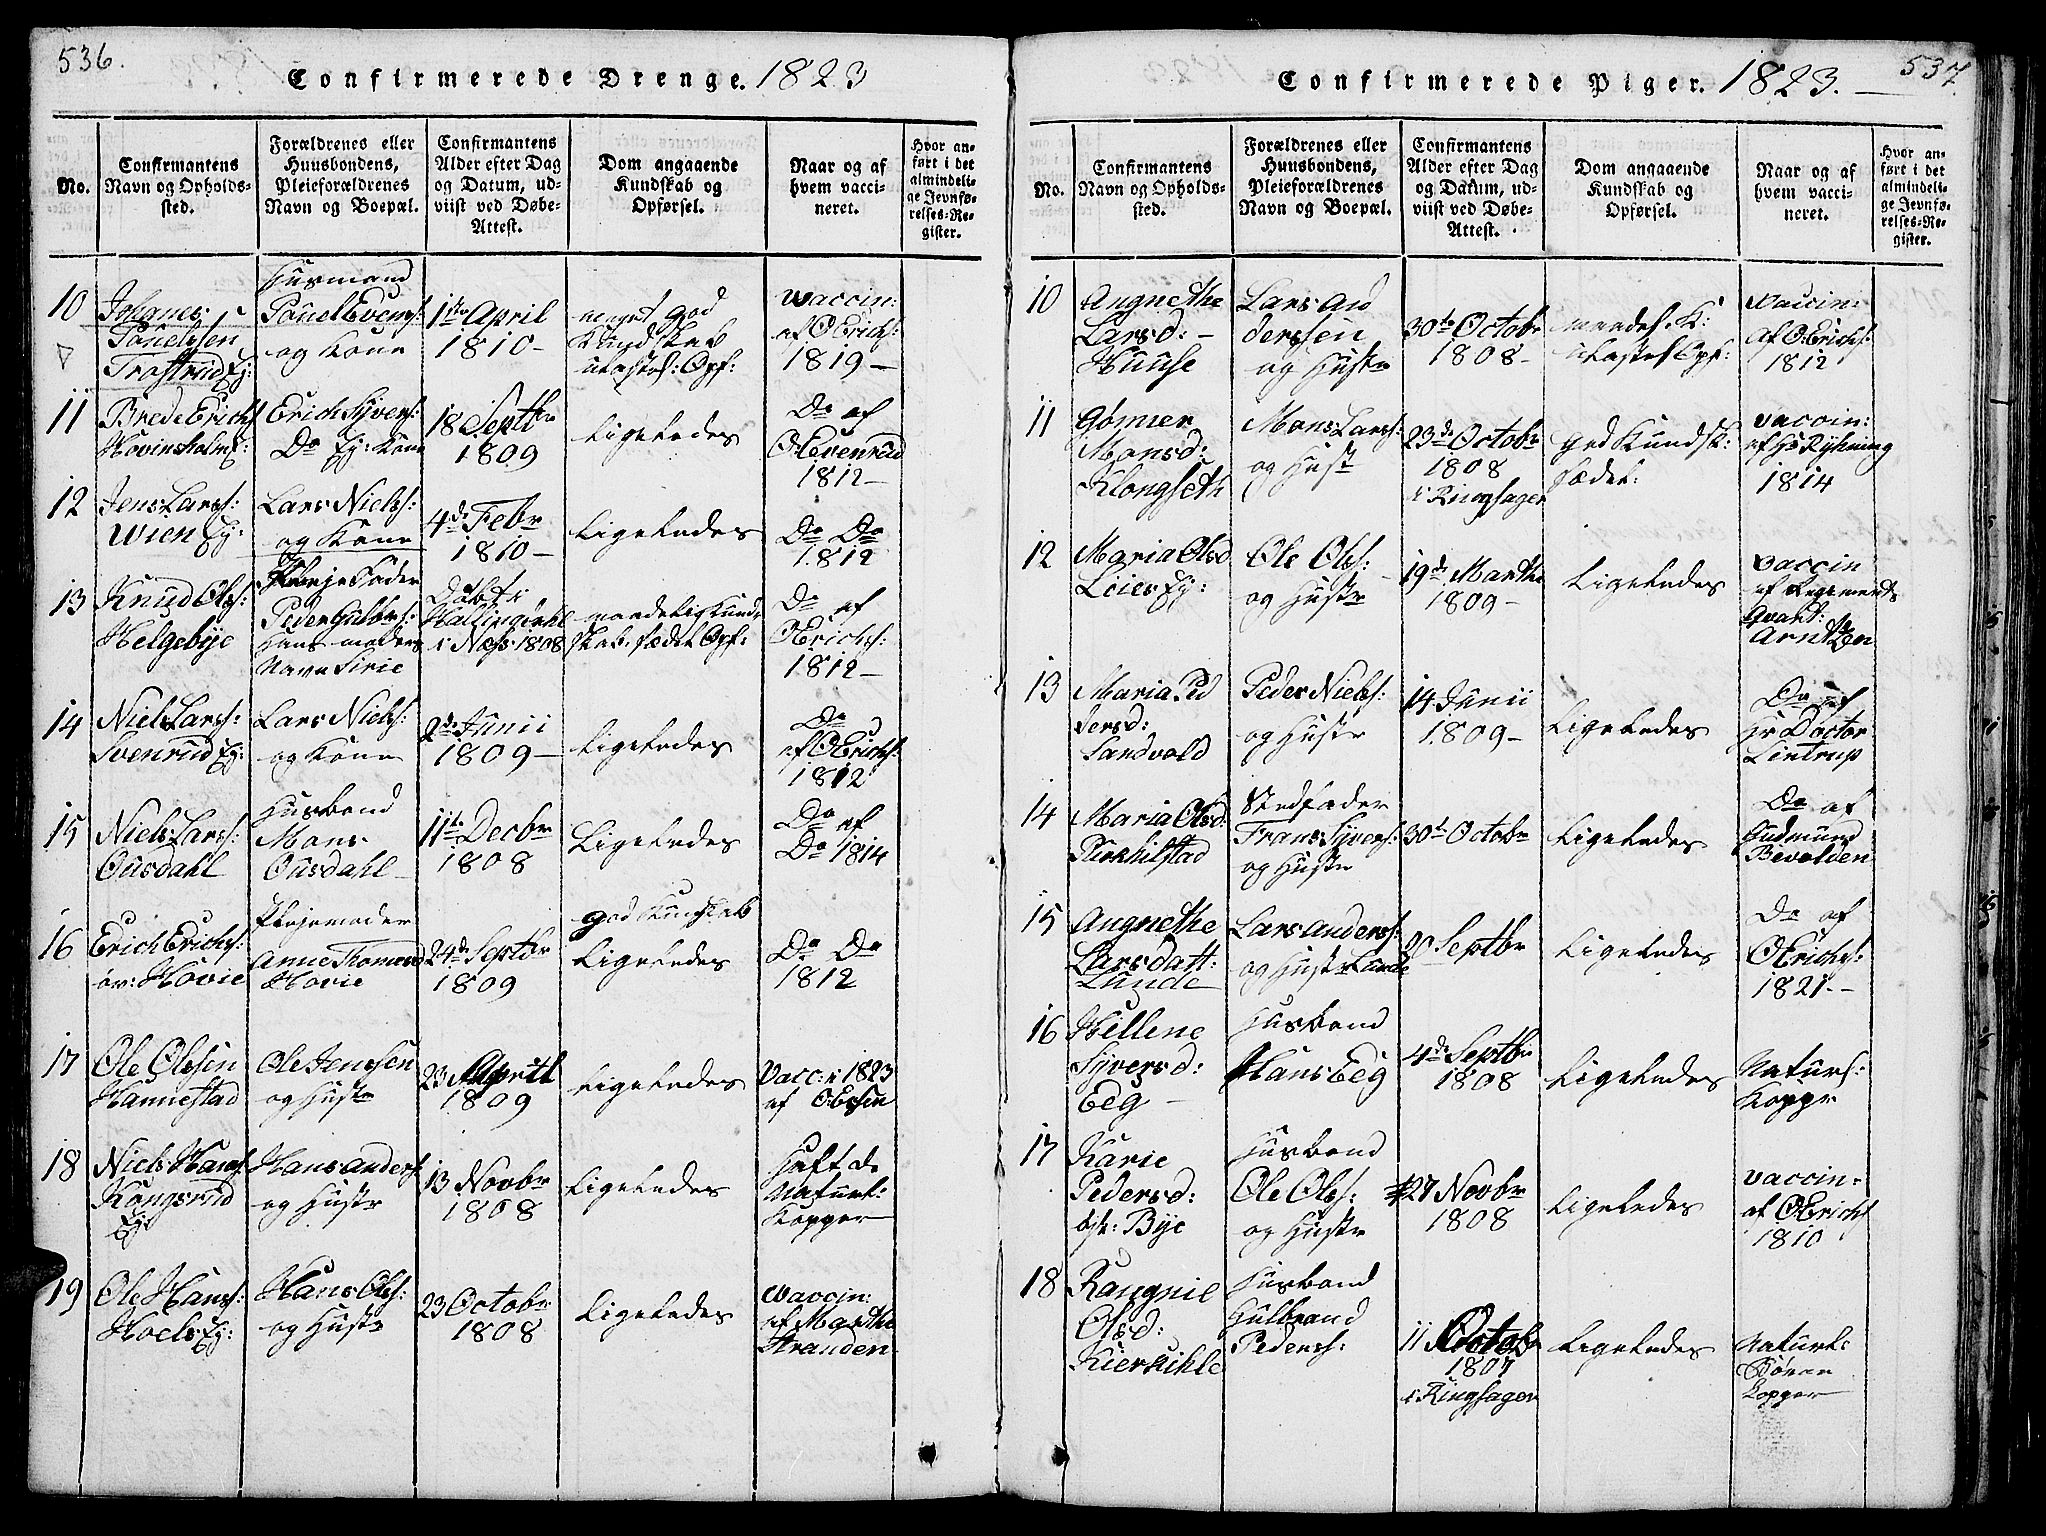 536.
Confirmerede Drenge. 1823
No.
Confirmantens
Navn og Opholds-
sted.
Forældrenes eller
Huusbondens,
Pleieforældrenes
Navn og Boepæl.
Confirmantens
Alder efter Dag
og Datum, ud-
viist ved Døbe-
Attest.
Dom angaaende
Kundskab og
Opførsel.
Naar og af
hvem vacci-
neret.
Hvor an-
ført i det
almindeli-
ge Jevnfø-
relses-Re-
gister.
10
Johanes
Pouelsen
Trostrud Ej:
Husmand
Pouel Evens:
og Kone
1ste April
1810-
meget god
Kundskab
udtastel: Opf:
vaccin:
af O Erichs:
1819 -
11
Brede Erichs
Hovinsholm E:
Erich Syvers:
Do Ej: Kone
18 Septbr
1809
Ligeledes
Do af
O Evenrud
1812 -
12
Jens Lars:
Wien Ej:
Lars Niels:
og Kone
4de Febr
1810 -
Ligeledes
Do Do
1812
13
Knud Ols:
Helgebye
Plejefader
Peder Gulbrs:
Hans moders
Navn Sirie
Døbt i
Hallingdahl
i Næss 1808
maadelig Kund-
skab. sædel Opf:
Do af
O Erichs:
1812 -
14
Niels Lars:
Svenrud Ej:
Lars Niels:
og Kone
2de Junii
1809 -
Ligeledes
Do
af O Erichs:
1812
15
Niels Lars:
Ousdahl
Husbond
Mons
Ousdahl
11te Decbr
1808
Ligeledes
Do af
Do 1814
16
Erich Erichs:
øv: Hovie
Plejemoder
Anne Thomesd
Hovie
24de Septbr
1809
god Kundskab
Ligeledes
Do Do
1812
17
Ole Olssen
Hannestad
Ole Jenssen
og Hustr
23 April
1809
Ligeledes
Vacc: i 1823
af Olssen
18
Niels Hans:
Kongsrud
Ej
Hans Anders:
og Hustr
13 Novbr
1808
Ligeledes
Haft de
Naturl:
Kopper
19
Ole Hans:
Hoels Ej:
Hans Ols:
og Hustr
23 Octobr
1808
Ligeledes
vaccin:
af Marthe
Stranden
537.
Confirmerede Piger. 1823. -
No.
Confirmantens
Navn og Opholds-
sted.
Forældrenes eller
Huusbondens,
Pleieforældrenes
Navn og Boepæl.
Confirmantens
Alder efter Dag
og Datum, ud-
viist ved Døbe-
Attest.
Dom angaaende
Kundskab og
Opførsel.
Naar og af
hvem vacci-
neret.
Hvor an-
ført i det
almindeli-
ge Jevnfø-
relses-Re-
gister.
10
Angnethe
Larsd: -
Huuse
Lars An
derssen
og Hustr
30te Octobr
1808 -
maadel. K:
Vaccin:
af O: Erichs:
1812
11
Monsd:
Klongseth
Mons Lars:
og Hust
23de Octobr
1808
i Ringsager
god Kundsk:
sædel:
vaccin:
af Hr Rykning
1814
12
Maria Olsd
Loiers Ej:
Ole Ols:
og Hustr
19de Marthi
1809 -
Ligeledes
Vaccin
af Regements
Arntzen
13
Maria Ped
dersd:
Sandvold
Peder Niels:
og Hustr
14 Junii
1809 -
Ligeledes
Do af
Hr Doctor
Lintrup
14
Maria Olsd:
Stedfader
Frans Syvers:
og Hustr
30te Octobr
Ligeledes
Do af
Gudmund
Bevolden
15
Angnethe
Larsdatt:
Lunde
Lars Anders:
og Hustr Lunde
20 Septbr
Ligeledes
Do af
O Erichs:
1821. -
16
Hellene
Syversd:
Eeg -
Husbond
Hans Eeg
4de Septbr
1808
Ligeledes
Naturs:
Koppr
17
Karie
Pedersd:
Bye
Husbond
Ole Ols:
og Hustr
27 Novbr
1808
Ligeledes
vaccin:
af O Erichs
1810
18
Rangnil
Olsd:
Kierkihle
Husbond
Gulbrand
Peders:
11 Octobr
1807
i Ringsager
Ligeledes
Naturl:
Børne
kopper